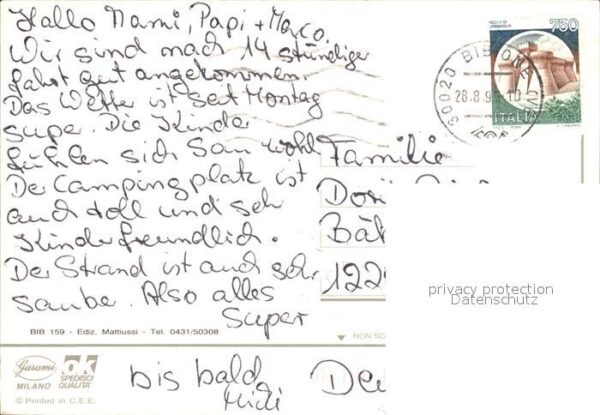 Hallo Mami, Papi + Marco.
Wir sind nach 14 stündiger
fahrt gut angekommen.
Das Wetter ist seit Montag
super. Die Kinder
fühlen sich sau wohl
Der Campingplatz ist
auch toll und sehr
Kinderfreundlich.
Der Strand ist auch sehr
sauber. Also alles
Super
bis bald
Familie
122
750
ITALIA
30020 BIBIONE
28.8.9
10
privacy protection
Datenschutz
BIB 159 - Ediz. Mattiussi - Tel. 0431/50308
NON SC
Garami
MILANO
ok
SPEDISCI
QUALITÀ
© Printed in C.E.E.